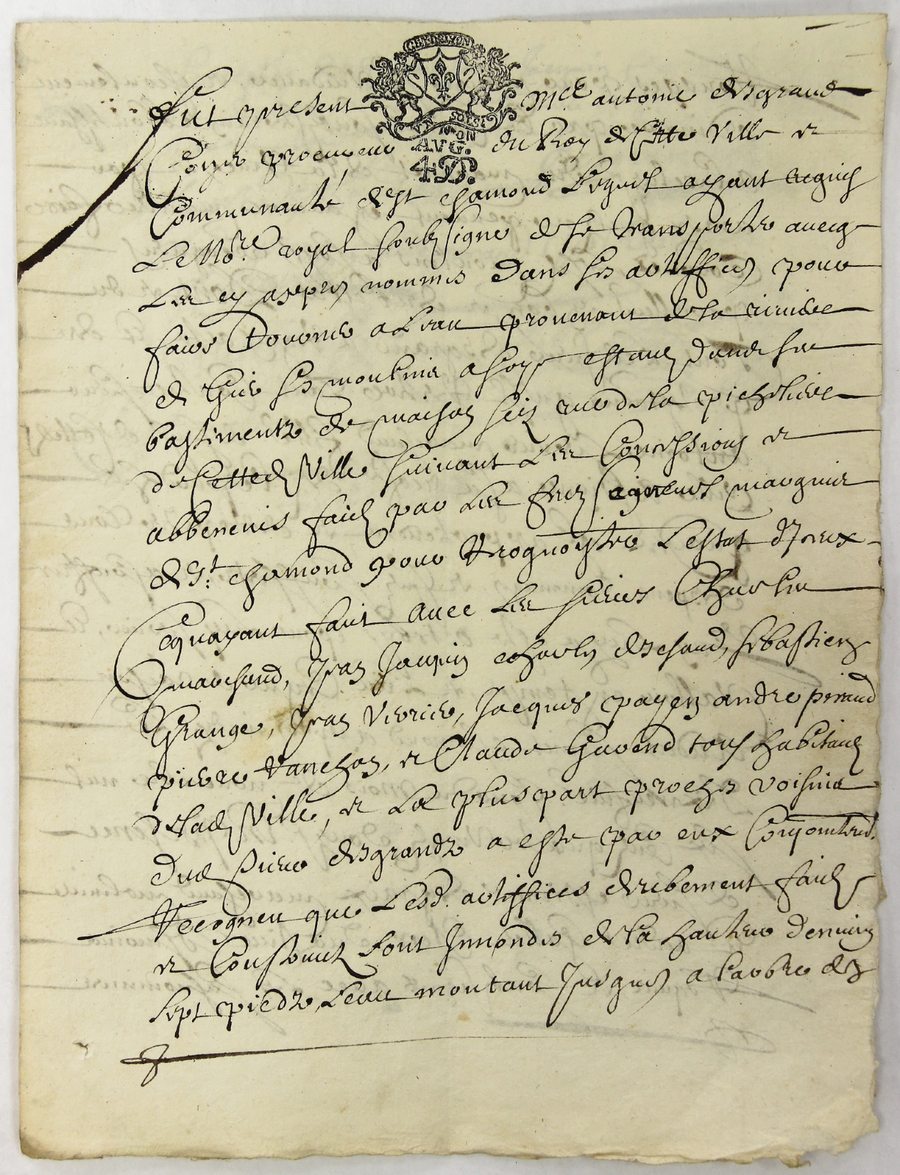 GEN. LYON
AVG.
4 D.
Fut present Mce antoine desgrand
Con.er procureur du Roy de Cette Ville et
Communauté de St chamond Lequel ayant requis
Le No.re royal soubsigne de se transporter avecq
Les cy apres nommes dans ses artiffices pour
faire tourner a Leau provenant de la riviere
de Gier ses moulins a soye estans dans ses
bastimentz de maison rue de la
de Cetted Ville suivant Les Concessions et
abbenevis faicts par Les Seigneurs marquis
de St. chamond pour recognoistre Lestat d'Iceux
Cequayant fait avec Les sieurs Charles
marchand, Jean Jacquin Charles deschaud, sebastien
Grange, Jean Verrier, Jacques payen andre peraud
pierre Vanchon, et Claude Gavend tous habitans
de lad Ville, et La pluspart proches voisins
Dud sieur desgrandz a este par eux Conjointemt.
Recogneu que Lesd. artiffices cy faicts
et Construits sont Innondes de la hauteur d'environ
sept piedz Leau montant Jusques a l'arbre des